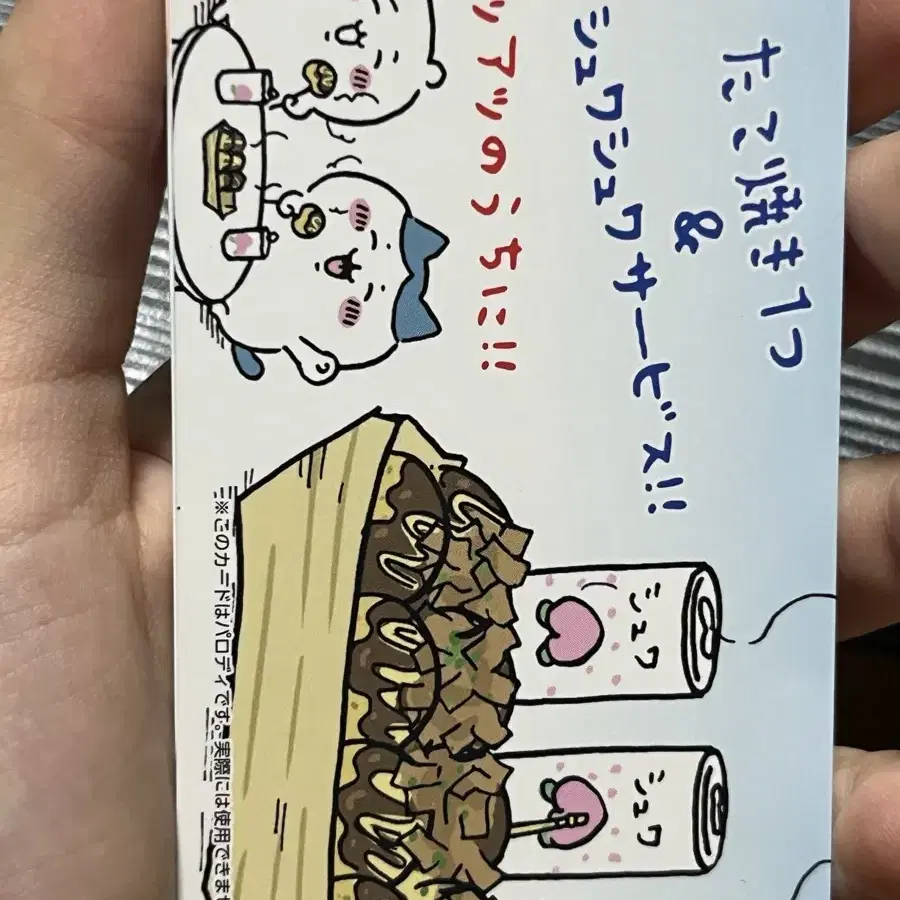 たこ焼き1つ
&
シュワシュワサービス!!
ツアツのうちに!!
シュワ
シュワ
※このカードはパロディです。実際には使用できませ